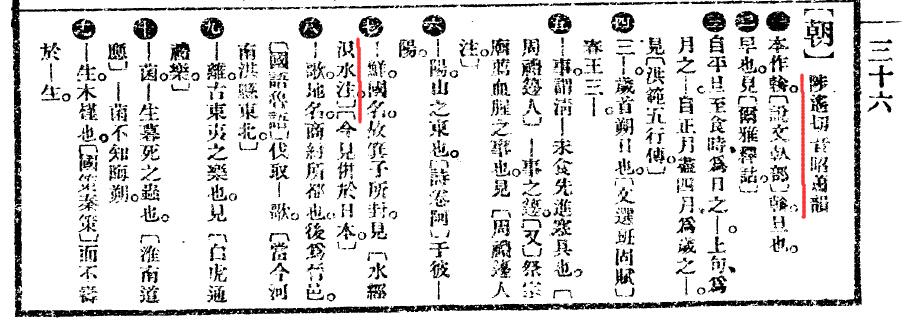 三十六
【朝】 陟遙切音昭蕭韻
㊀本作𦩻[說文倝部]𦩻旦也。
㊁早也。見[爾雅釋詁]
㊂自平旦至食時爲日之—。上旬、爲
月之—。自正月盡四月爲歲之—。
見[洪範五行傳]
㊃三—歲首朔日也。[文選班固賦]
春王三—
㊄—事謂清—未食先進寒具也。[
周禮籩人]—事之籩[又]祭宗
廟薦血腥之事也見[周禮籩人
注]
㊅—陽山之東也。[詩卷阿]于彼—
陽。
㊆—鮮。國名。故箕子所封。見[水經
浿水注][今見併於日本]
㊇—歌。地名。商紂所都也。後爲晉邑。
[國語魯語]伐取—歌[當今河
南淇縣東北]
㊈—離。古東夷之樂也。見[白虎通
禮樂]
㊉—菌。—生暮死之蟲也。[淮南道
應]—菌不知晦朔
—生。木槿也。[國策秦策]而不壽
於—生。